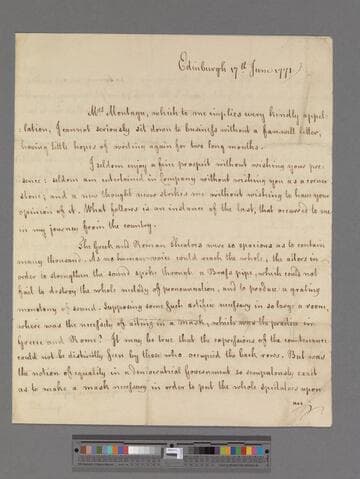 Edinburgh 17th June 1771
Mrs Montagu, which to me implies every kindly appel-
:lation, I cannot seriously sit down to business without a farewell letter,
having little hopes of writing again for two long months.
I seldom enjoy a fine prospect without wishing your pre-
:sence; seldom am entertained in Company without wishing you as a corner
stone; and a new thought never strikes me without wishing to have your
opinion of it. What follows is an instance of the last, that occurred to me
in my journey from the country.
The Greek and Roman Theatres were so spacious as to contain
many thousand. As no human voice could reach the whole, the actors in
order to strengthen the sound spoke through a Brass pipe, which could not
fail to destroy the whole nicety of pronounciation, and to produce a grating
monotony of sound. Supposing some such artifice necessary in so large a room,
where was the necessity of acting in a mask, which was the practice in
Greece and Rome? It may be true that the expressions of the countenance
could not be distinctly seen by those who occupied the back rows. But was
the notion of equality in a democratical Government so scrupulously exact
as to make a mask necessary in order to put the whole spectators upon
an